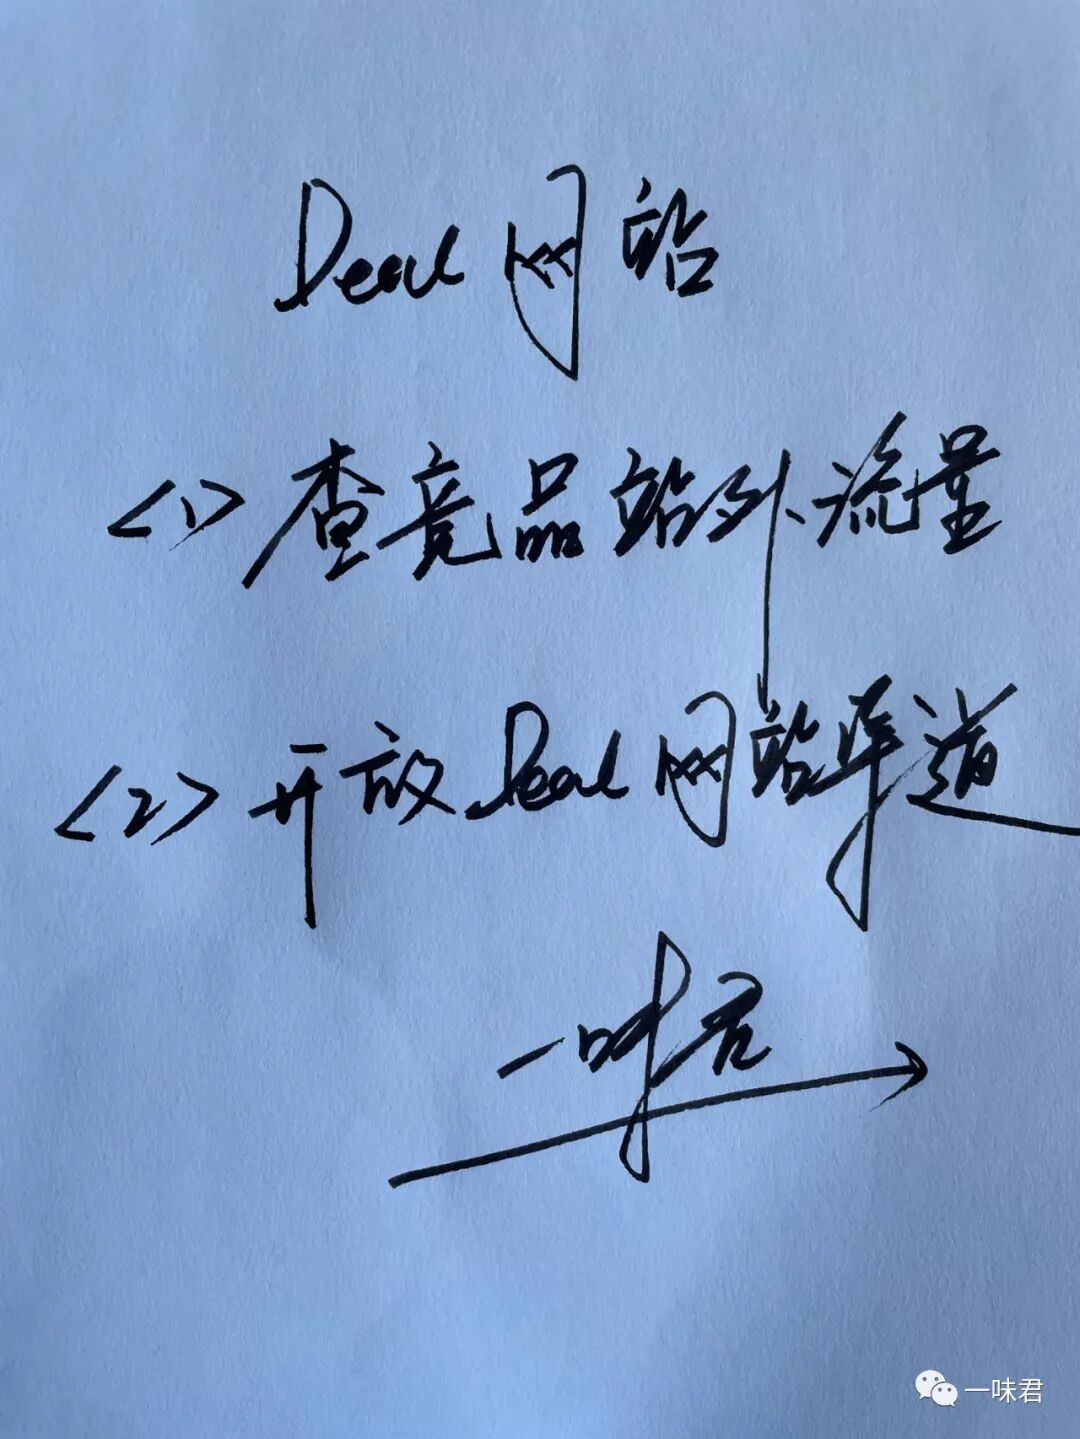 Deal 网站
<1> 查竞品站外流量
<2> 开放 Deal 网站渠道
一味君
一味君